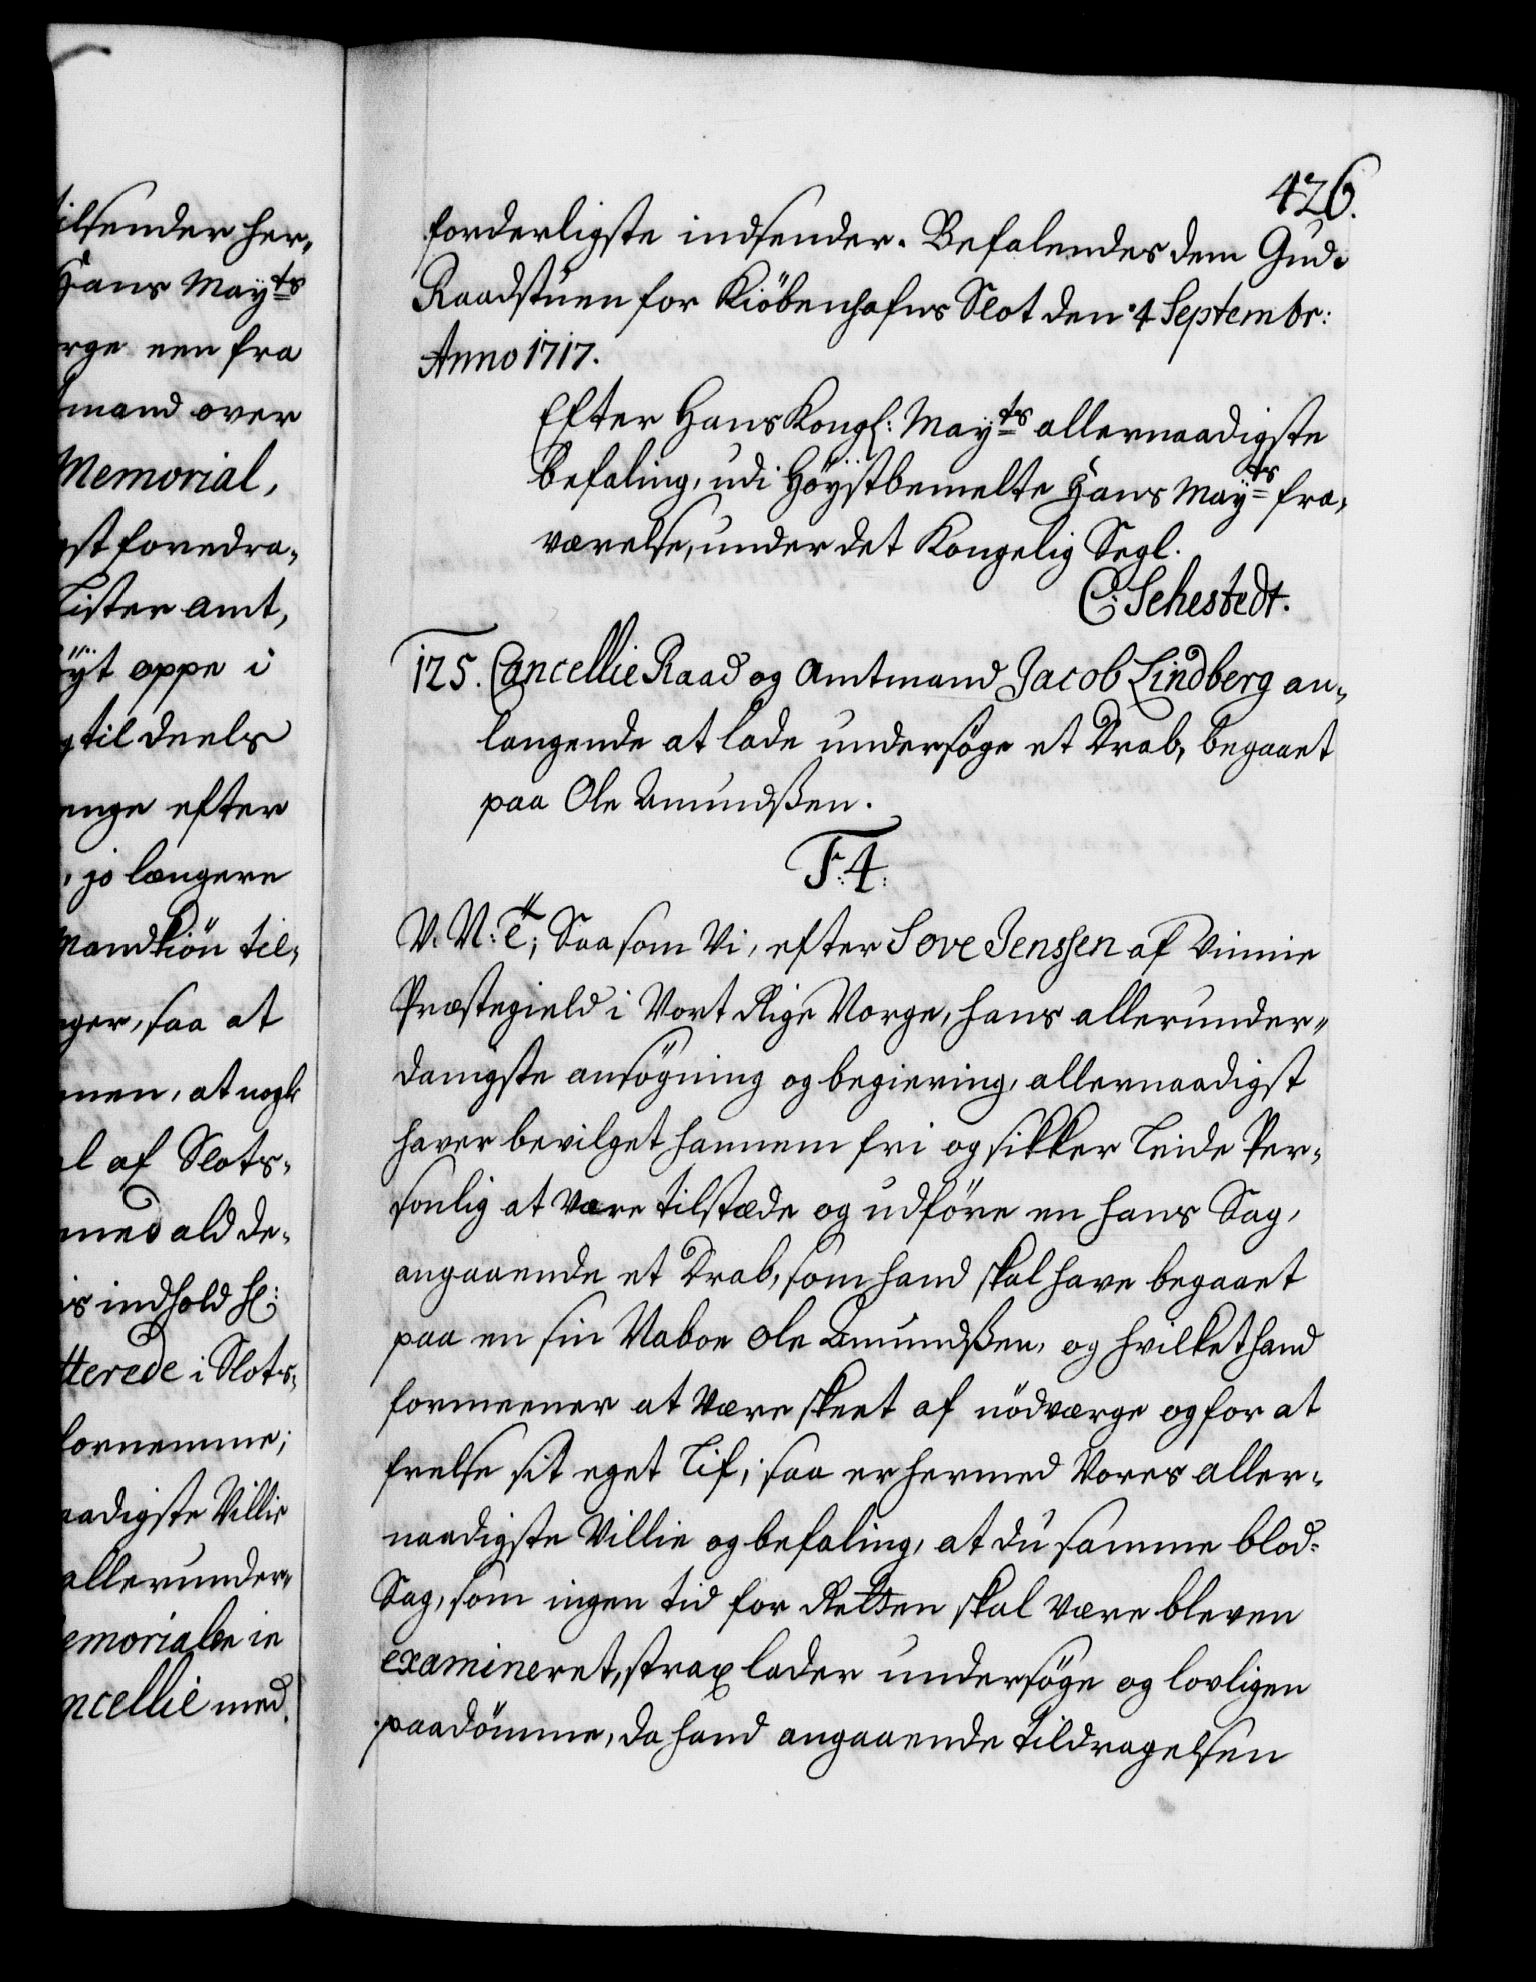 tilsender her-
Hans Mayts
rge een fra
mand over
Memorial,
st foredra-
Lister amt,
öyt oppe i
til deels
enge efter
, jo længere
Mandkiön til-
ger, saa at
men, at nogle
l af Slots-
med ald de-
is indhold H:
tterede i Slots-
fornemme;
aadigste Villie
allerunder-
emorialen ie
ncellie med.
426.
forderligste indsender. Befalendes dem Gud.
Raadstuen for Kiöbenhafns Slot den 4 Septembr:
Anno 1717.
Efter Hans Kongl: Mayts allernaadigste
befaling, udi Höystbemelte Hans Mayts fra-
værelse, under det Kongelig Segl.
C: Sehestedt.
125. Cancellie Raad og Amtmand Jacob Lindberg an-
langende at lade undersöge et Drab, begaaet
paa Ole Amundßen.
F: 4.
V. N: C; Saasom Vi, efter Sove Jenssen af Vinnie
Præstegield i Vort Rige Norge, hans allerunder-
danigste ansögning og begiering, allernaadigst
haver bevilget hannem fri og sikker Leide Per-
sonlig at være tilstæde og udföre en hans Sag,
angaaende et Drab, som hand skal have begaaet
paa en sin Naboe Ole Amundßen, og hvilket hand
formeener at være skeet af nödværge og for at
frelse sit eget Lif; saa er hermed Vores aller-
naadigste Villie og befaling, at du samme blod-
Sag, som ingen tid for Retten skal være bleven
examineret, strax lader undersöge og lovligen
paadömme, da hand angaaende tildragelsen